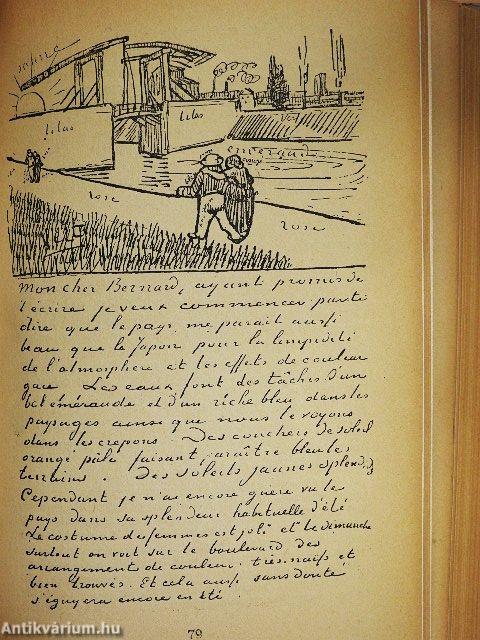 jaune
lilas
lilas
vert
emeraude
rose
rose
Mon cher Bernard, ayant promis de
t'écrire je veux commencer par te
dire que le pays me parait aussi
beau que le Japon pour la limpidité
de l'atmosphère et les effets de couleur
gaie. Les eaux font des tâches d'un
bel éméraude et d'un riche bleu dans les
paysages ainsi que nous le voyons
dans les crepons. Des couchers de soleil
orangé pâle faisant paraître bleu les
terrains. Des soleils jaunes splendides
Cependant je n'ai encore guère vu les
pays dans sa splendeur habituelle d'été
Le costume des femmes est joli et le dimanche
surtout on voit sur le boulevard des
arrangements de couleur très naïfs et
bien trouvés. Et cela aussi sans doute
s'égayera encore en été.
79
Antikvárium.hu